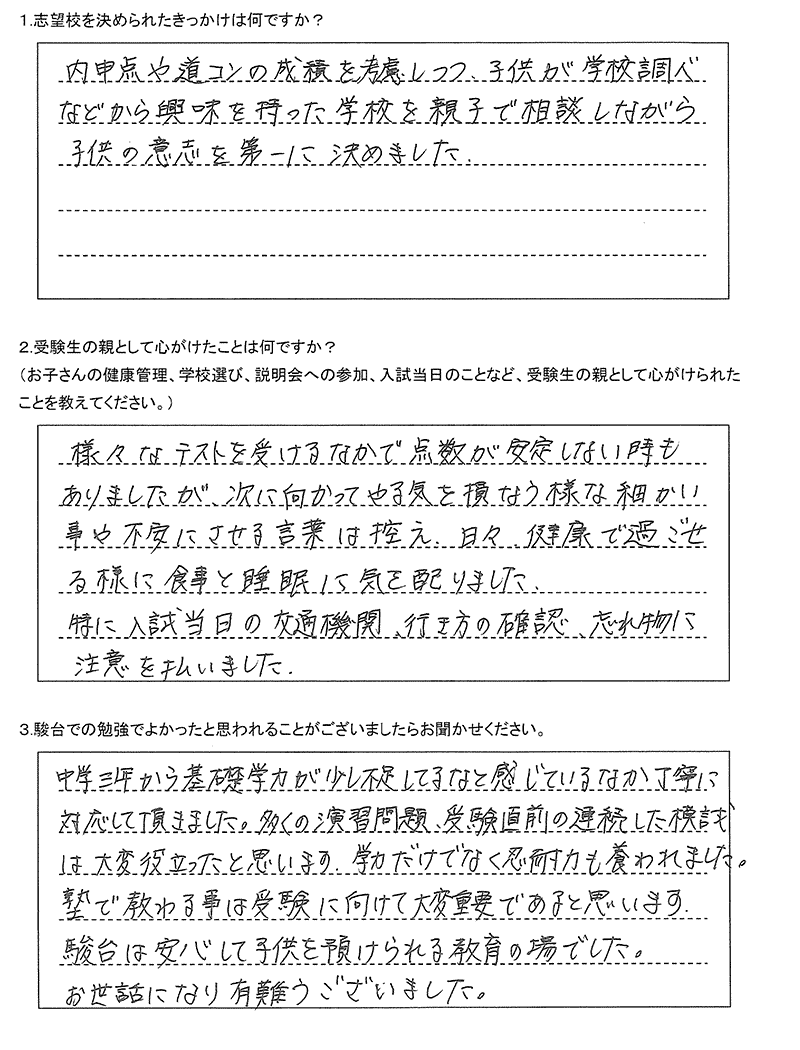 1.志望校を決められたきっかけは何ですか？
内申点や道コンの成績を考慮しつつ、子供が学校調べ
などから興味を持った学校を親子で相談しながら
子供の意志を第一に決めました.
2.受験生の親として心がけたことは何ですか？
（お子さんの健康管理、学校選び、説明会への参加、入試当日のことなど、受験生の親として心がけられた
ことを教えてください。）
様々なテストを受けるなかで点数が安定しない時も
ありましたが、次に向かってやる気を損なう様な細かい
事や不安にさせる言葉は控え.日々、健康で過ごせ
る様に食事と睡眠に気を配りました.
特に入試当日の交通機関、行き方の確認、忘れ物に
注意を払いました.
3.駿台での勉強でよかったと思われることがございましたらお聞かせください。
中学三年から基礎学力が少し不足してるなと感じているなか丁寧に
対応して頂きました。多くの演習問題、受験直前の連続した模試
は大変役立ったと思います.学力だけでなく忍耐力も養われました。
塾で教わる事は受験に向けて大変重要であると思います.
駿台は安心して子供を預けられる教育の場でした。
お世話になり有難うございました。